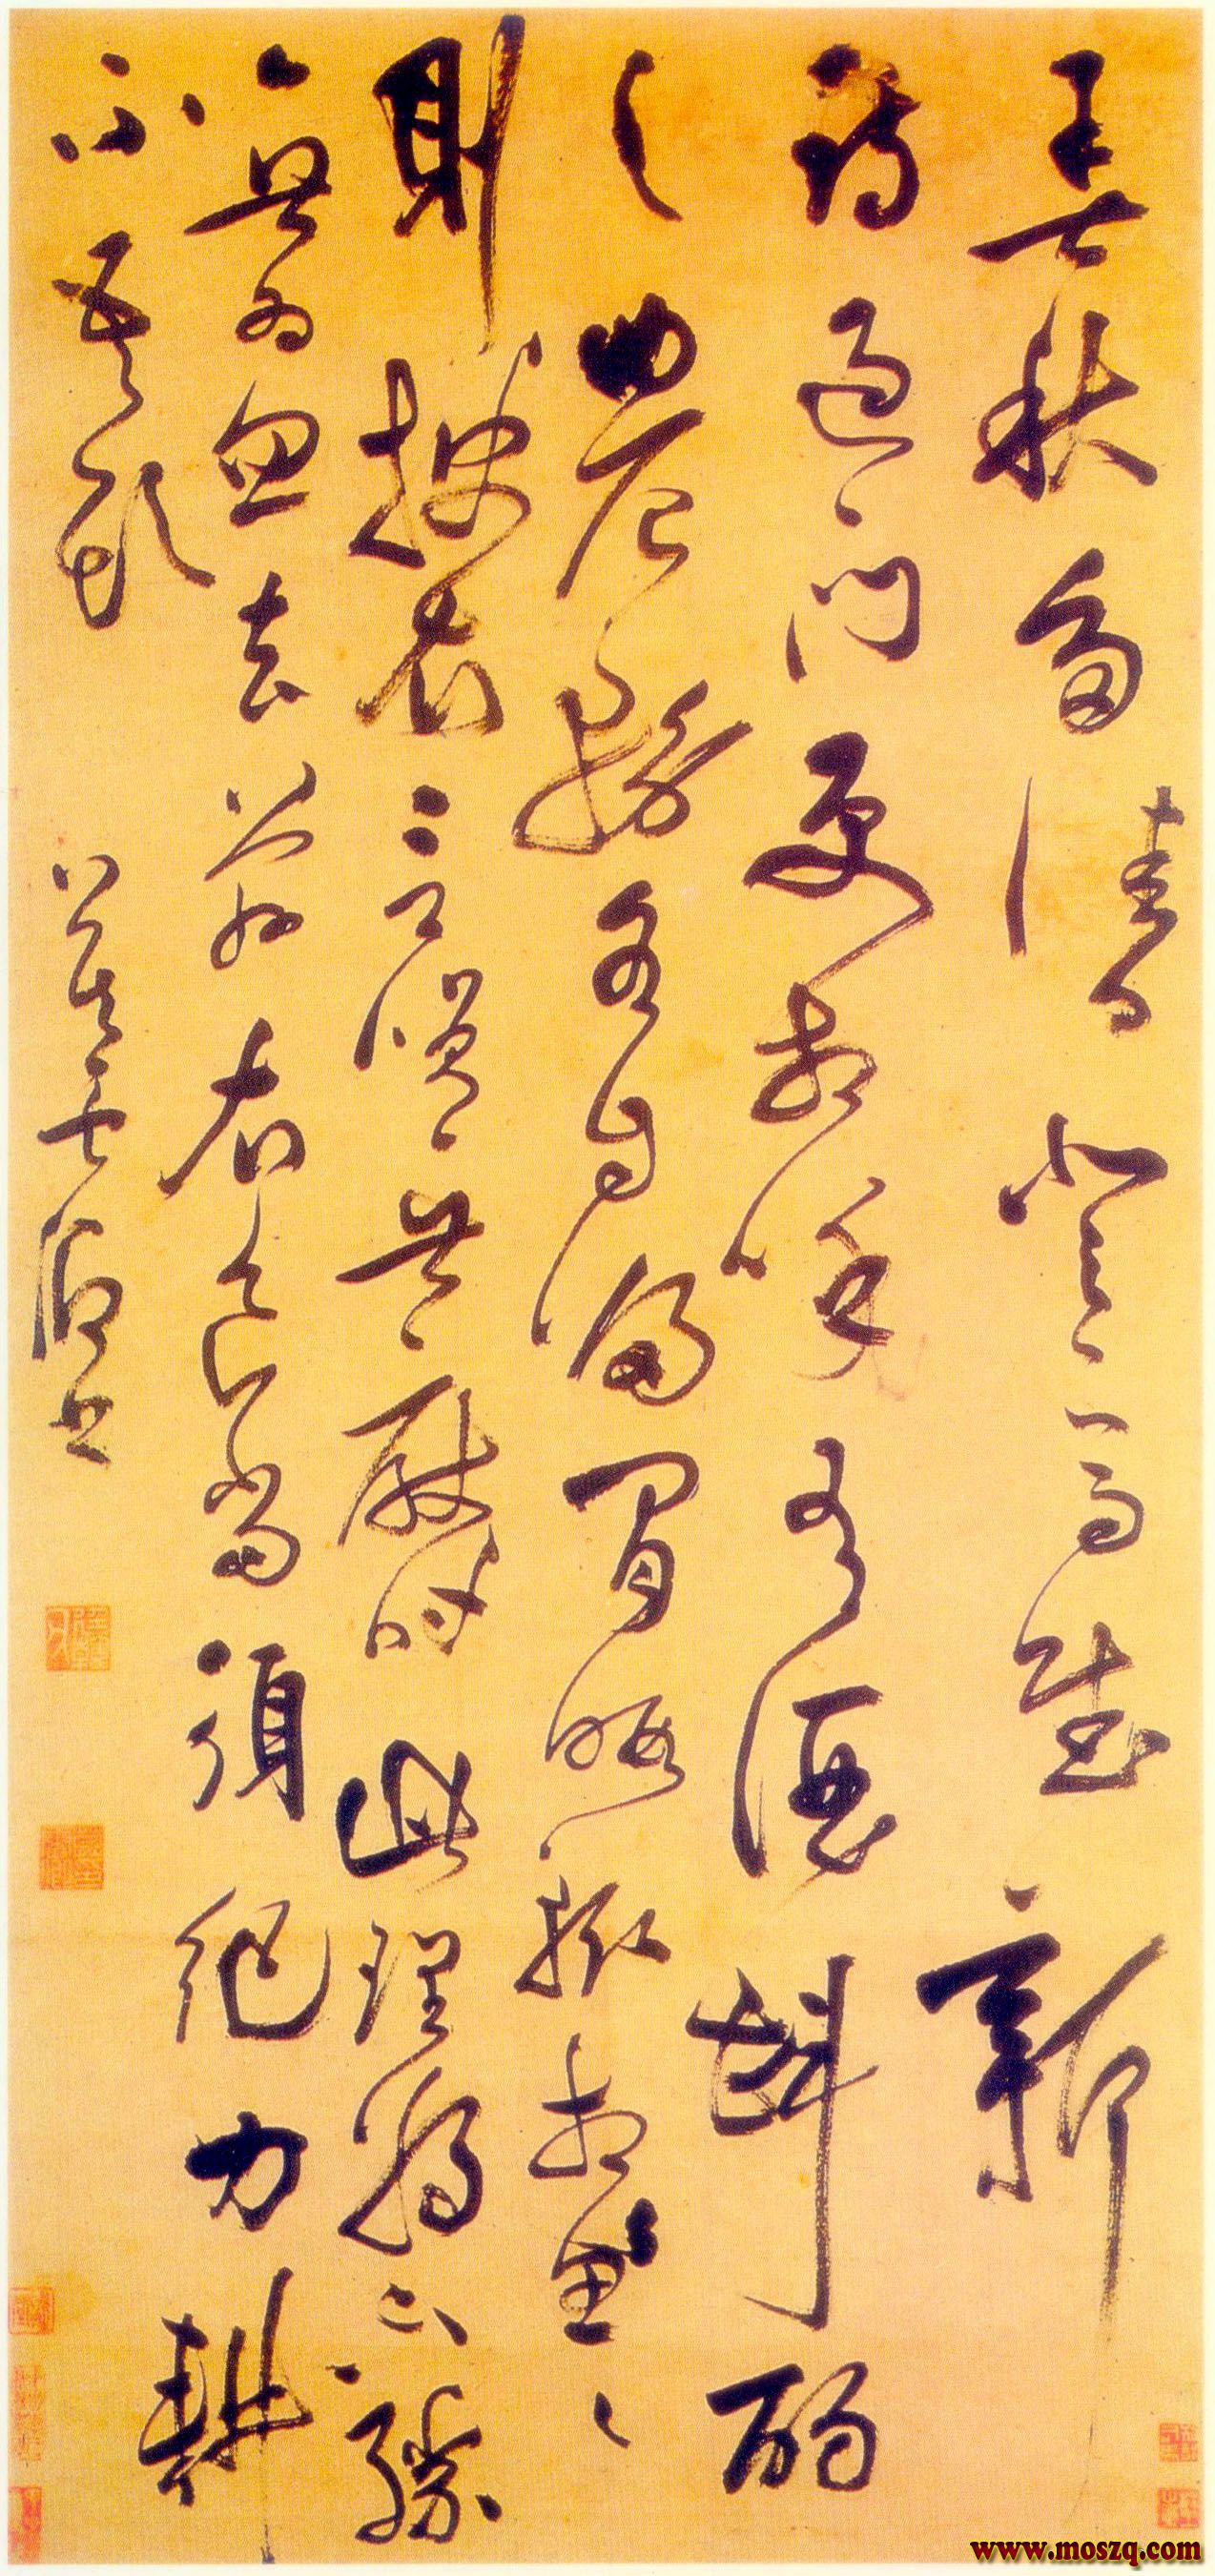 春秋多佳日登高賦新
詩過門更相呼有酒斟酌
之農務各自歸間暇輒相思〻
則披衣言笑無厭時此理將不勝
無為忽去茲衣食當須紀力耕
不吾欺 莫雲卿書
www.moszq.com